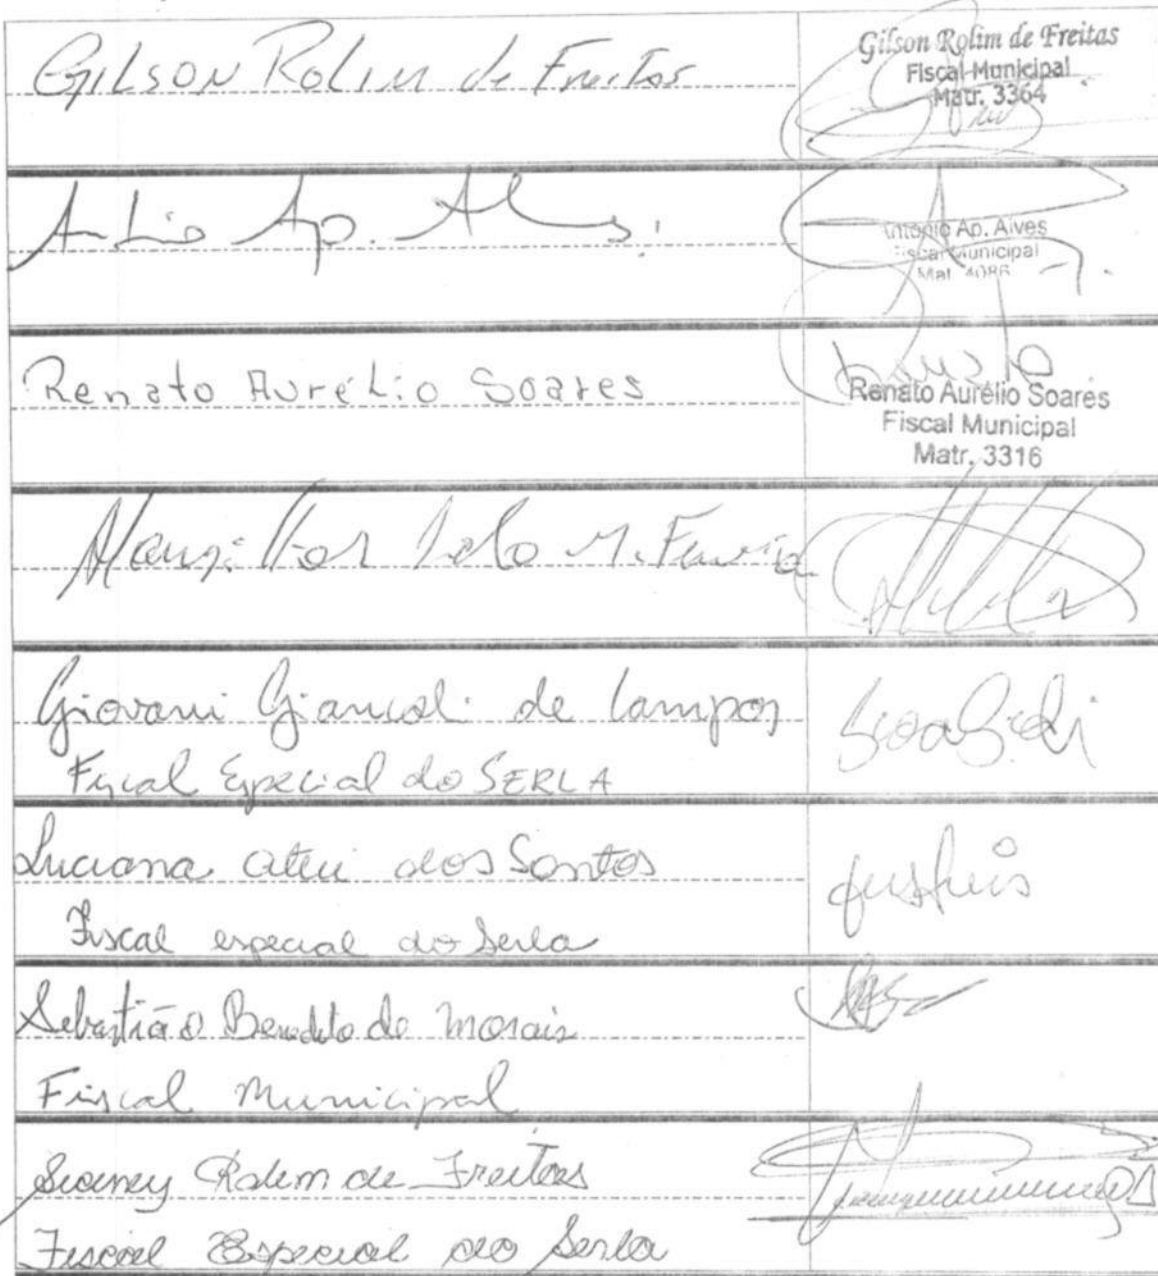 GILSON ROLIM de Freitas
Gilson Rolim de Freitas
Fiscal Municipal
Matr. 3364
Ap.
Antonio Ap. Alves
Fiscal Municipal
Mat. 4086
Renato Aurélio Soares
Renato Aurélio Soares
Fiscal Municipal
Matr. 3316
M. Ferreira
Giovani Giancoli de Campos
Fiscal Especial do SERLA
Luciana dos Santos
Fiscal especial do Serla
Sebastião Benedito de Morais
Fiscal Municipal
Rolim de Freitas
Fiscal Especial do Serla